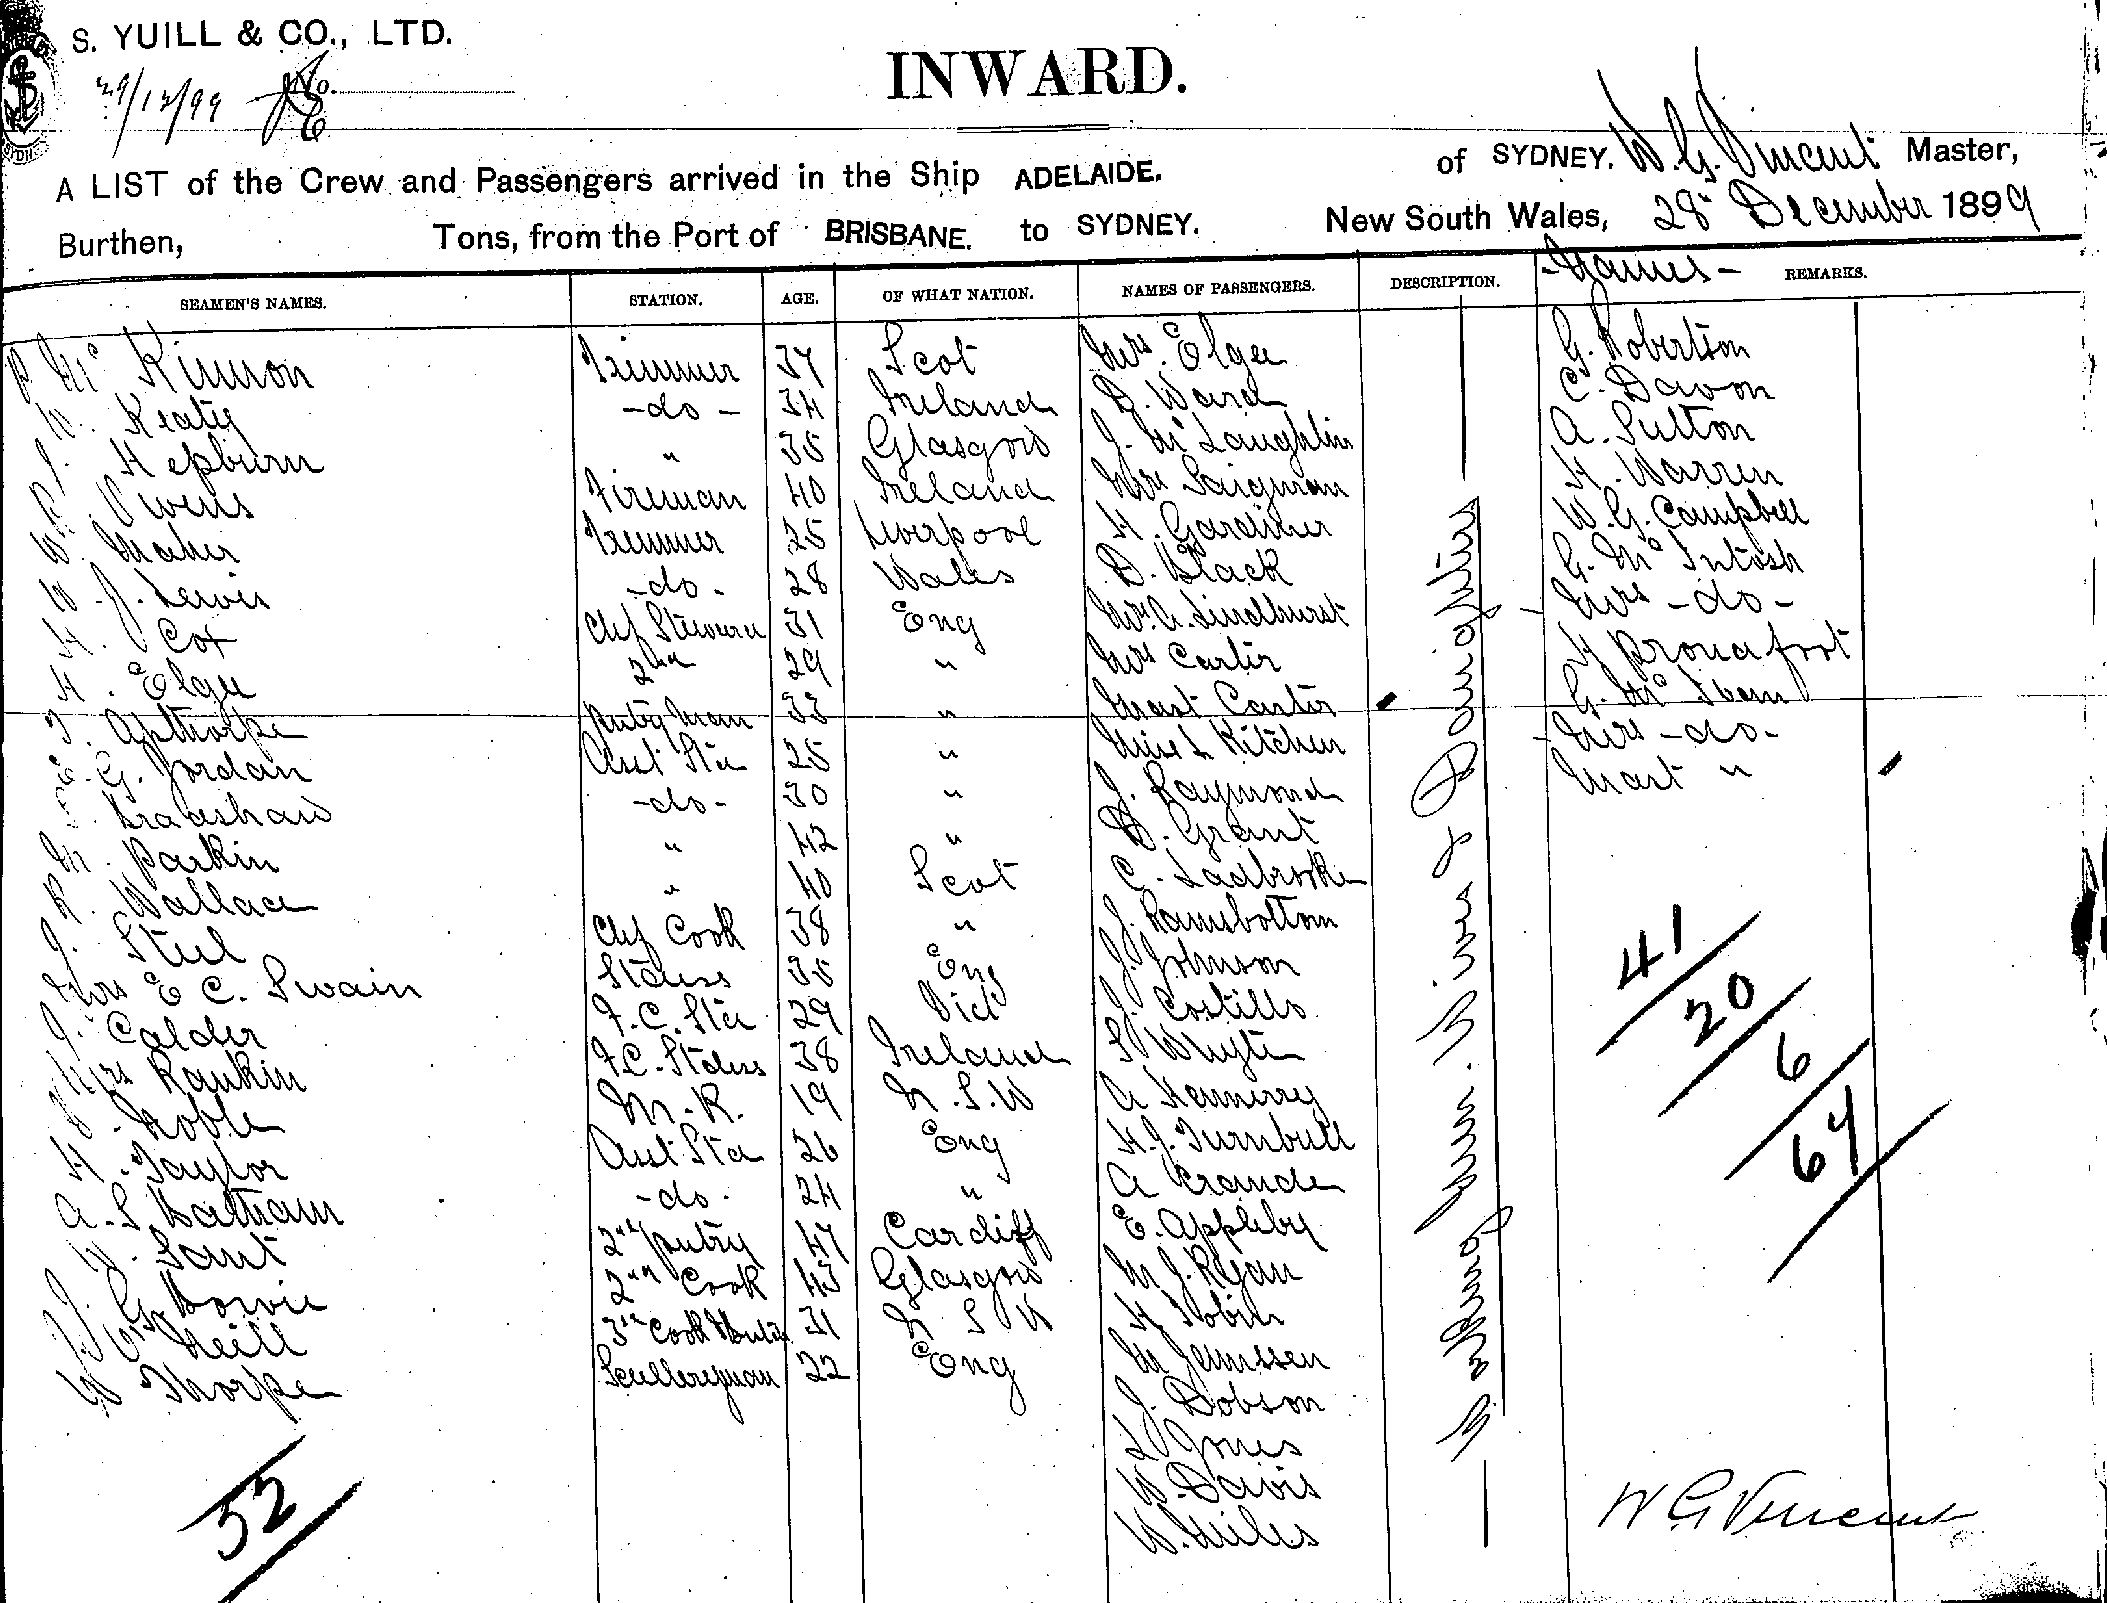 S. YUILL & CO., LTD.
29/12/99 No.
INWARD.
A LIST of the Crew and Passengers arrived in the Ship ADELAIDE. of SYDNEY. W. G. Vincent Master,
Burthen, Tons, from the Port of BRISBANE. to SYDNEY. New South Wales, 28" December 1899
SEAMEN'S NAMES. STATION. AGE. OF WHAT NATION. NAMES OF PASSENGERS. DESCRIPTION. - Names - REMARKS.
P. McKinnon Trimmer 37 Scot Mrs. Elgee G. Robertson
W. Keaty -do- 34 Ireland D. Ward C. Davon
J. Hepburn " 35 Glasgow J. McLaughlin A. Sutton
R. Owens Fireman 40 Ireland Mrs Saigman H. Warren
W. Maher Trimmer 25 Liverpool H. Gardiner W. G. Campbell
W. J. Lewis -do- 28 Wales D. Black G. McIntosh
H. Cox Chf Steward 31 Eng Mrs. A. Lindhurst Mrs -do-
H. Elgee 2nd 29 " Mrs Carter H Proudfoot
T. Apthorpe Pntry man 33 " Mast Carter G. Mc
E. G. Jordan Asst Std 25 " Miss L Kitchen Mrs -do-
Bradshaw -do- 30 " J. Raymond Mast "
M. Parkin " 42 " D. Grant
R. Wallace " 40 Scot C. Ladbrooke
J. Steel Chf Cook 38 " J. Ramsbottom
Mrs E C. Swain Stdess 35 Eng J. Johnson
J. Calder F. C. Std 29 Vict J. Costillo
Mrs Rankin F.C. Stdess 38 Ireland S Whyte
Noble M. R. 19 N. S. W A Hennessy
H. Taylor Asst Std 26 Eng H. J. Turnbull
A. S. Batham -do- 24 " A Brande
W. Sant 2nd pntry 47 Cardiff E. Appleby
J. G. Bowie 2nd Cook 43 Glasgow M J. Ryan
J. W. Neill 3rd Cook & Butch 31 N S W H Tobin
W Thorpe Sculleryman 22 Eng M Janssen
J. Dobson
L Jones
W. Davis
W. Miles
& Daughter
41
20
6
67
52
W G Vincent